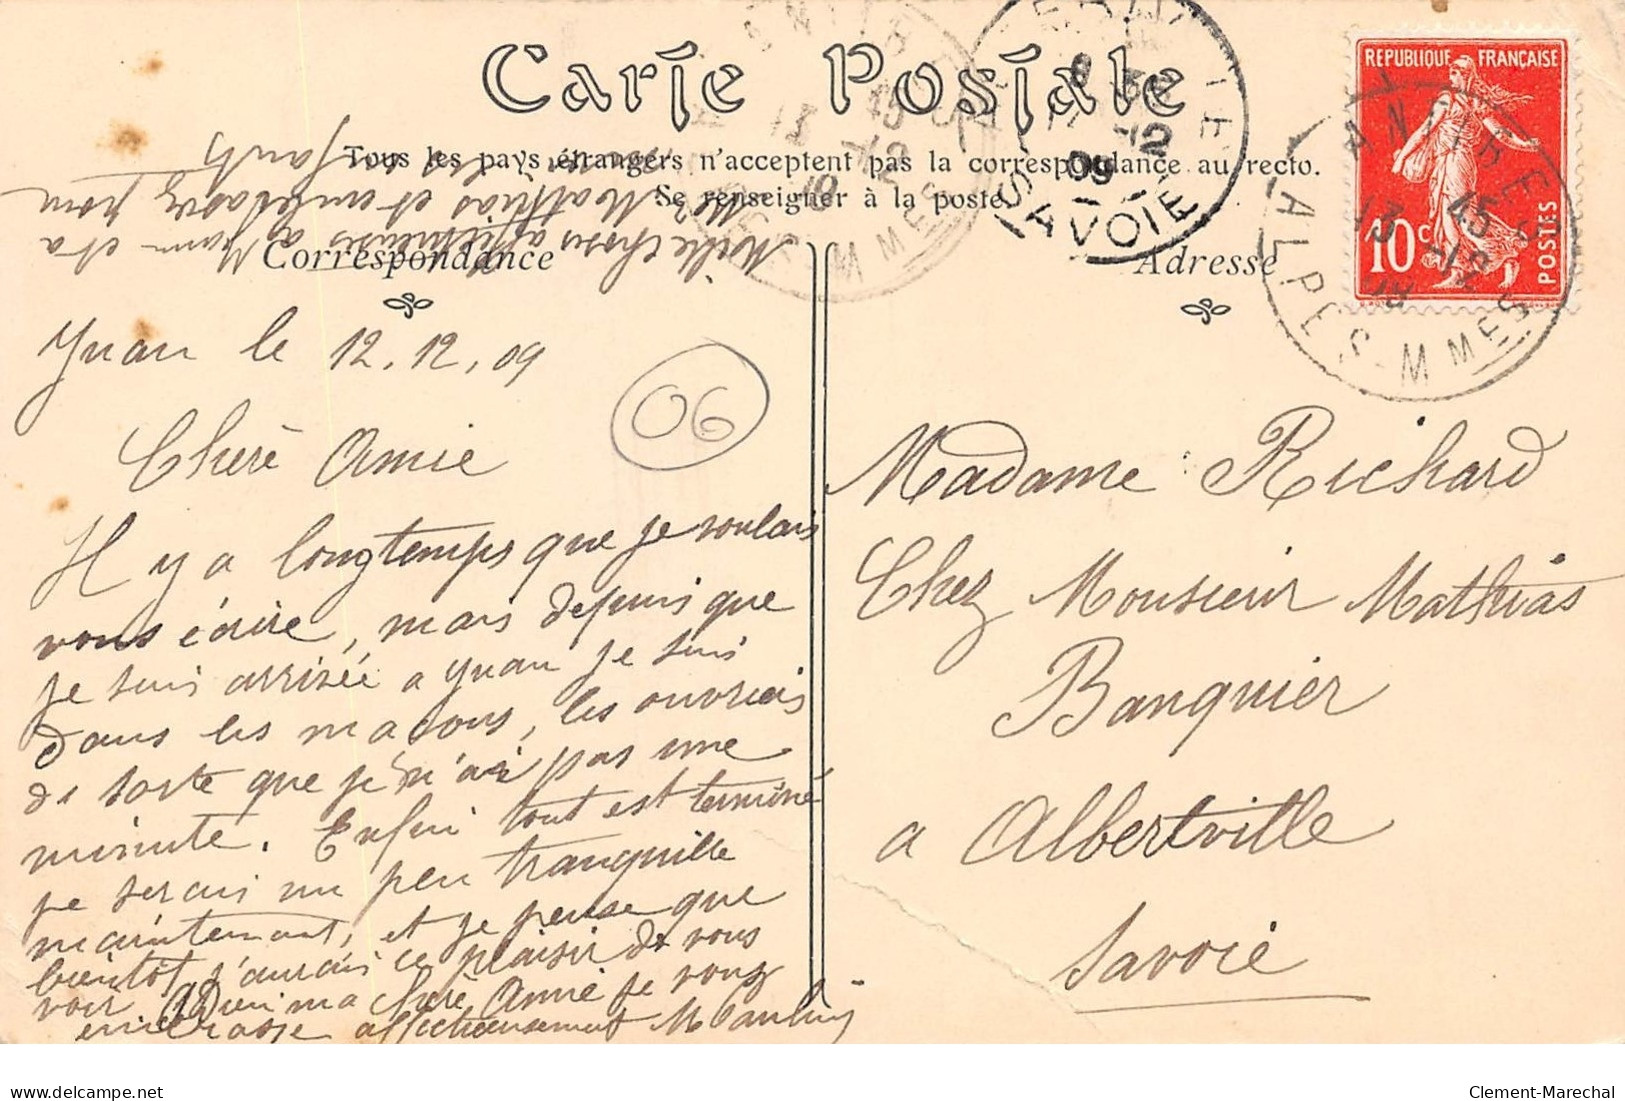 Carte Postale
Tous les pays étrangers n'acceptent pas la correspondance au recto.
Se renseigner à la poste.
Correspondance
Adresse
REPUBLIQUE FRANÇAISE
10c
POSTES
ANTIBES
13 -12
ALPES-MMES
12
09
SAVOIE
06
Mille choses affectueuses a Mam et a
Mr Mathias et embrassez pour
Juan le 12.12.09
Cherè Amie
Il y a longtemps que je voulais
vous écrire, mais depuis que
je suis arrisée a Juan je suis
dans les maçons, les ouvriers
de sorte que je n'ai pas une
minute. Enfin tout est terminé
je serais un peu tranquille
maintenant, et je pense que
bientôt j'aurais ce plaisir de vous
voir Adieu ma cherè Amie je vous
embrasse affectueusement
Madame Richard
Chez Monsieur Mathias
Banquier
a Albertville
Savoie
delcampe.net
Clement-Marechal